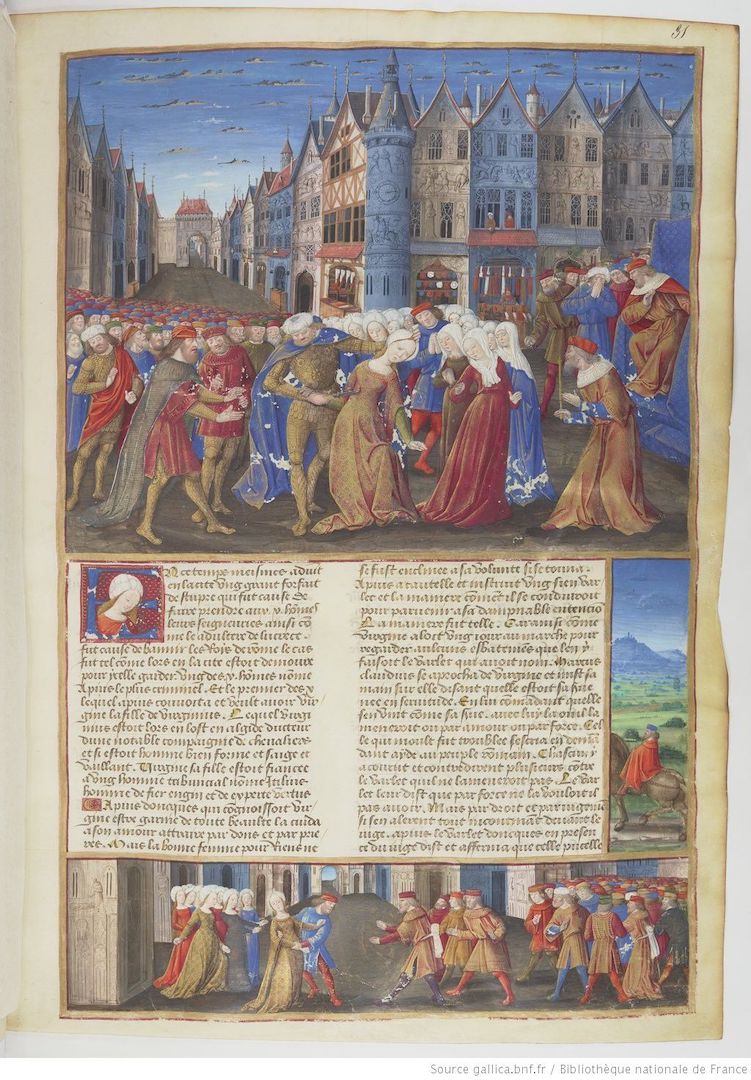 En ce temps meismes aduit
en la cite vng grant forfait
de stupre qui fut cause de
faire prendre aux .x. homes
leurs seigneuries ainsi come
le adultere de lucrece
fut cause de bannir les Rois de rome le cas
fut tel come lors en la cite estoit demoure
pour icelle garder vng des .x. homes nome
Apius le plus criminel. Et le premier des .x.
lequel apius conuoita et voult auoir vir
gine la fille de virginius. Lequel virgi
nius estoit lors en lost en algide ducteur
dune notable compaignie de cheualiers
et si estoit homme bien forme et saige et
vaillant. Virgine sa fille estoit fiancee
a vng homme tribunical nome Itilius
homme de fier engin et de experte vertus
Apius doncques qui congnoissoit vir
gine estre garnie de toute beaulte la cuida
a son amour attraire par dons et par prie
res. Mais la bonne femme pour Riens ne
se fust enclinee a sa volunte si se tourna
Apius a cautelle et instruit vng sien var
let et la maniere coment il se conduiroit
pour paruenir a sa dampnable entencio
La maniere fut telle. Car ainsi come
virgine aloit vng iour au marche pour
regarder aulcuns esbatemens que len y
faisoit le varlet qui auoit nom Marcus
claudius se aprocha de virgine et mist sa
main sur elle disant quelle estoit sa sur
nee en seruitude. Et luy comandant quelle
sen vint come sa serue auec luy ou il la
menroit ou par amour ou par force. Cel
le qui moult fut troublee sescria en deman
dant ayde au peuple Romain. Chascun y
acourut et contredirent plusieurs contre
le varlet quil ne la menroit pas. Le var
let leur dist que par force ne la vouloit il
pas auoir. Mais par droit et par iugement
si sen alerent tous incontinant deuant le
iuge apius le varlet doncques en presen
ce du iuge dist et afferma que celle pucelle
Source gallica.bnf.fr / Bibliothèque nationale de France